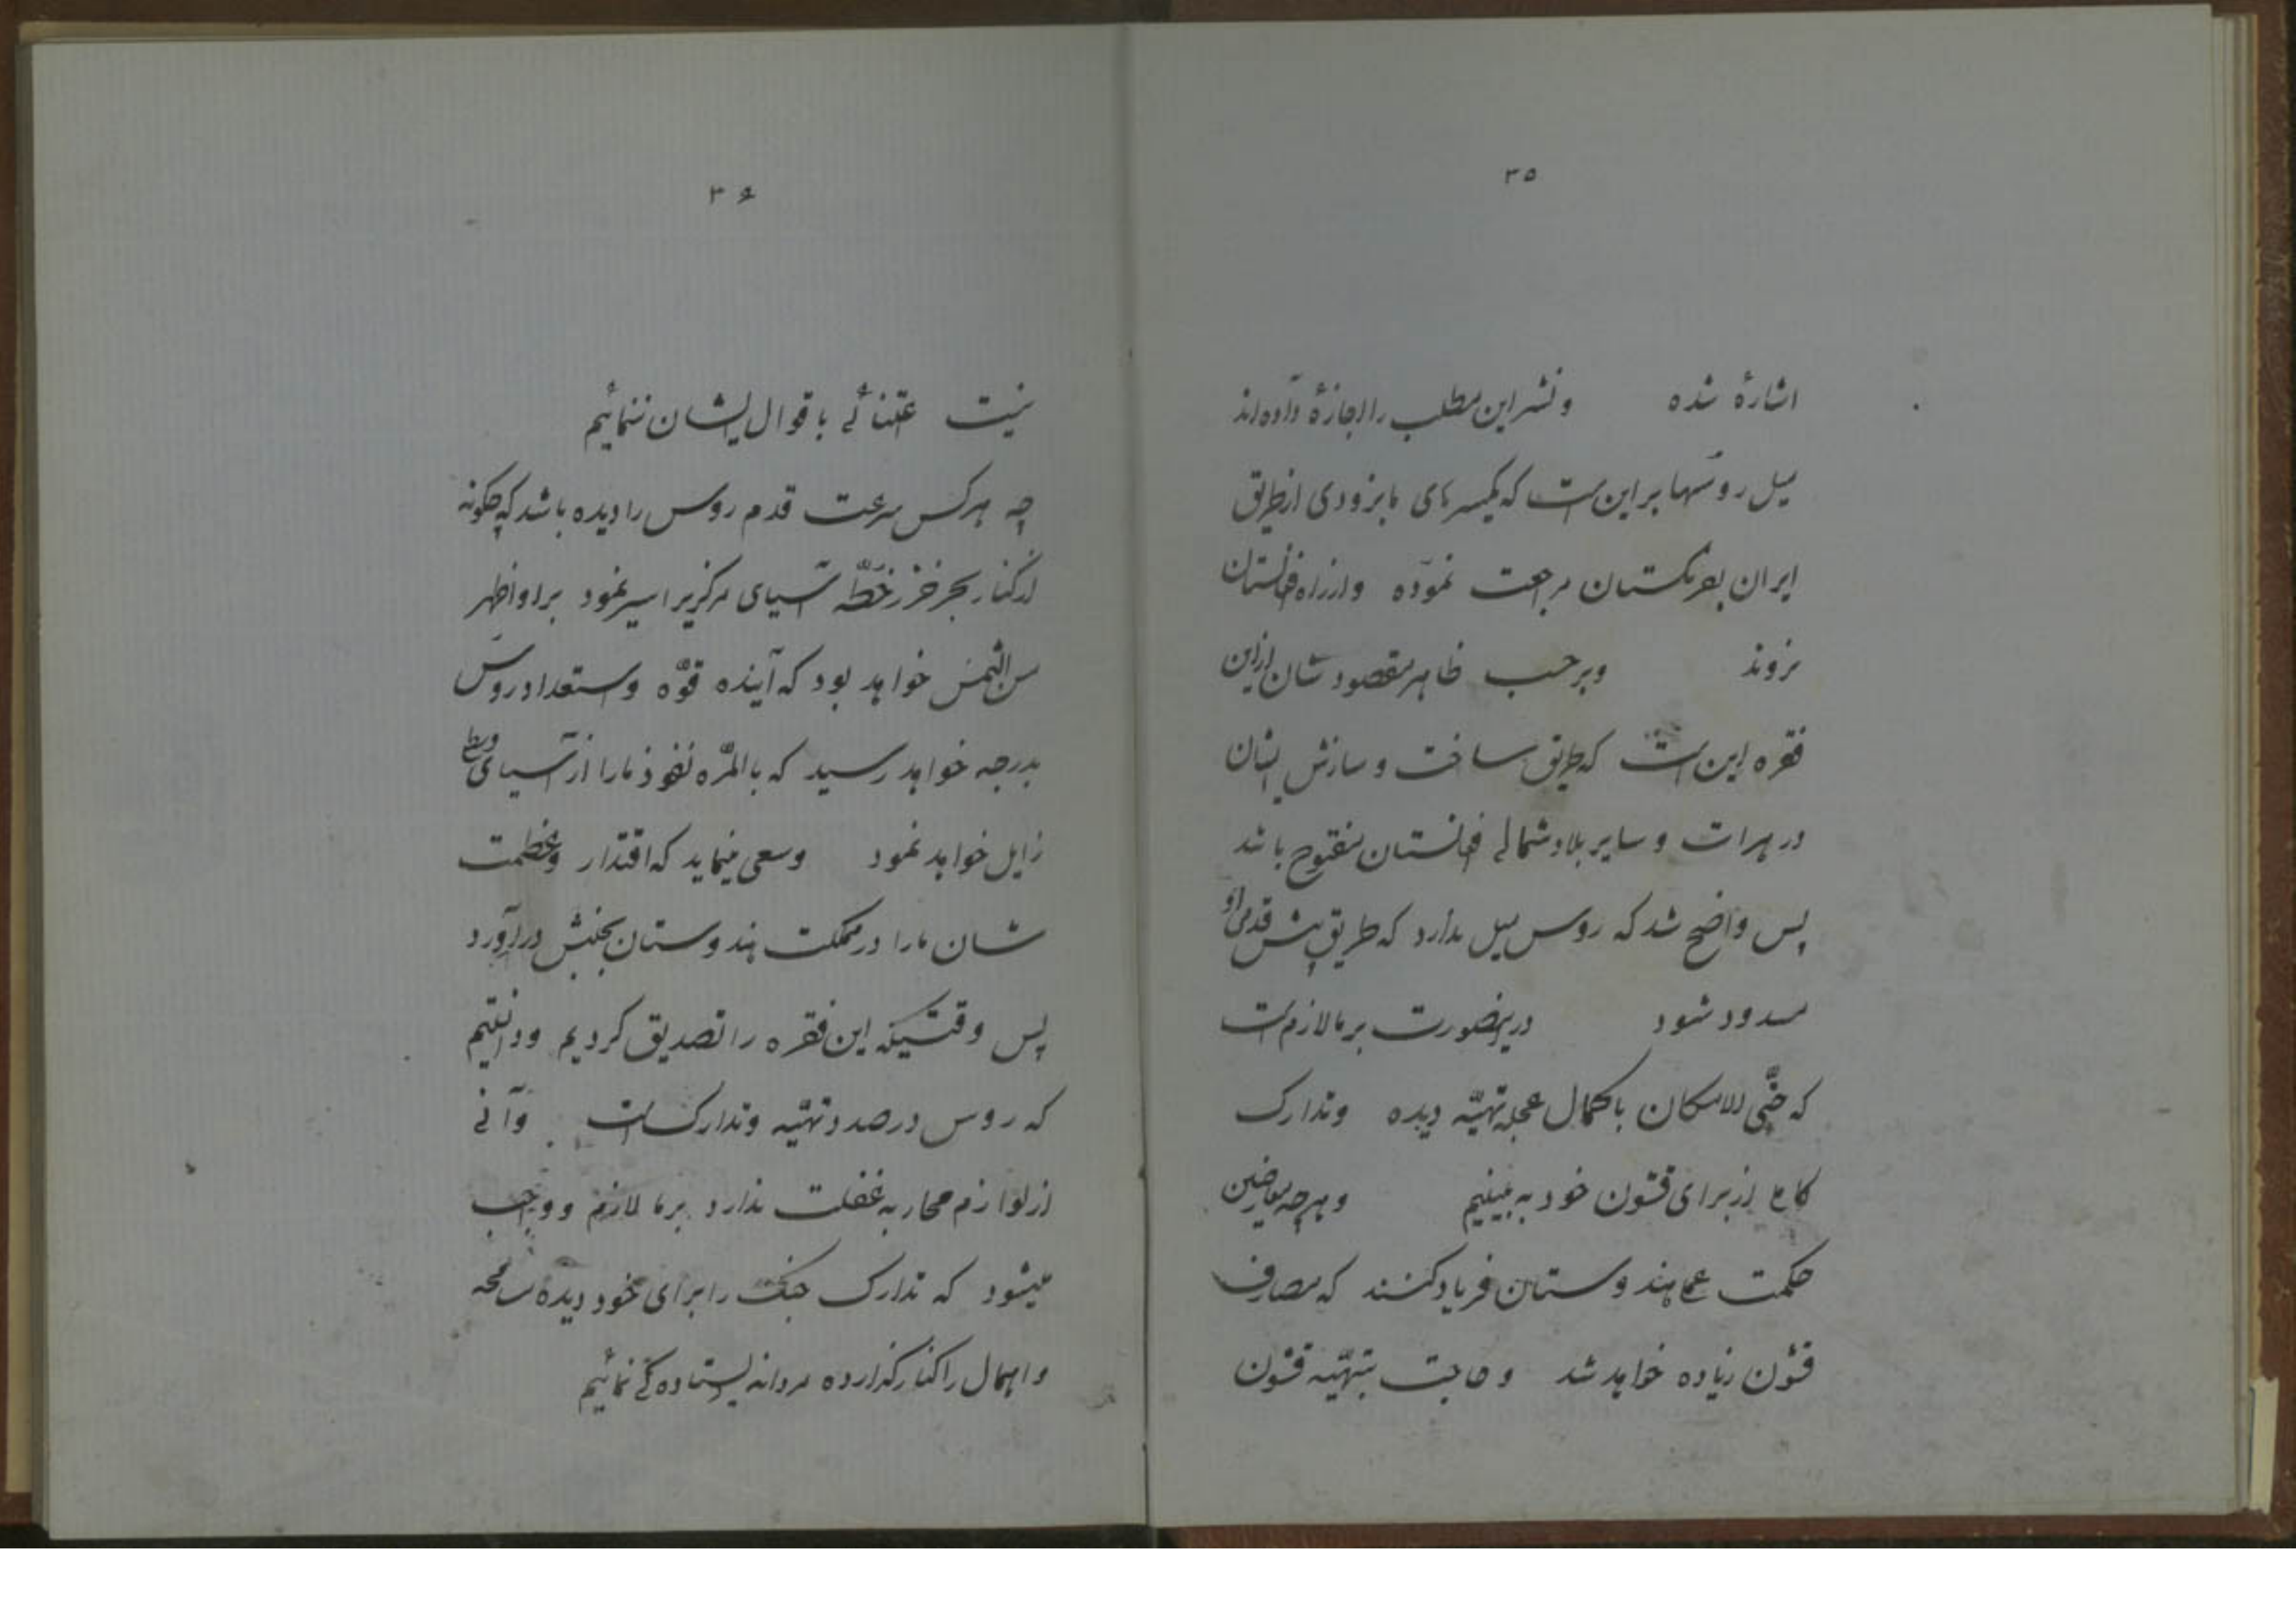 ۳۵
اشارهٔ شده و نشر این مطلب را اجازهٔ داده‌اند
میل روسها بر این است که کمیسرهای ما بزودی از طریق
ایران بعربستان مراجعت نموده و از راه افغانستان
نروند و برحسب ظاهر مقصودشان از این
فقره این است که طریق ساخت و سازش ایشان
در هرات و سایر بلاد شمالی افغانستان مفتوح باشد
پس واضح شد که روس میل ندارد که طریق پیش قدمی او
مسدود شود در اینصورت بر ما لازم است
که حتّی الامکان با کمال عجله تهیّه دیده و تدارک
کاملا از برای قشون خود به بینیم و هرچه معارضین
حکمت عملی هندوستان فریاد کنند که مصارف
قشون زیاده خواهد شد و حاجت بتهیّه قشون
۳۶
نیست اعتنائی باقوال ایشان ننمائیم
چه هرکس سرعت قدم روس را دیده باشد که چگونه
از کنار بحر خزر خطّه آسیای مرکزیرا سیر نمود بر او اظهر
من الشمس خواهد بود که آینده قوّه و استعداد روس
بدرجه خواهد رسید که بالمرّه نفوذ ما را از آسیای وسطی
زایل خواهد نمود و سعی مینماید که اقتدار و عظمت
شان ما را در مملکت هندوستان بجنبش درآورد
پس وقتیکه این فقره را تصدیق کردیم و دانستیم
که روس در صدد تهیّه و تدارک است و آنی
از لوازم محاربه غفلت ندارد بر ما لازم و واجب
میشود که تدارک جنگ را برای خود دیده مسامحه
و اهمال را کنار گذارده مردانه ایستاده‌گی نمائیم